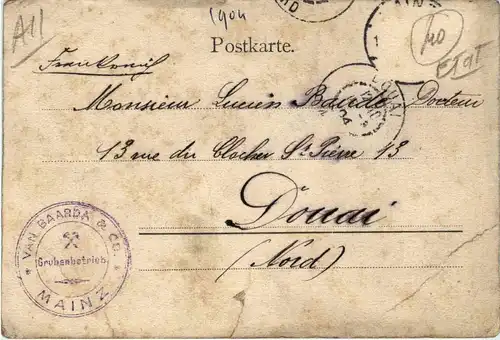 1904
A11
MAINZ
40
ETAT
Postkarte.
Frankreich
Monsieur Lucien Docteur
DOUAI
04
13 rue du Clocher St Pierre 13
Douai
(Nord)
VAN BAARDA & CO.
Grubenbetrieb
MAINZ